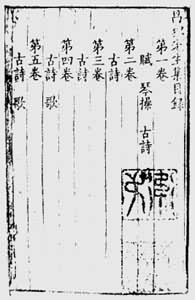 昌黎先生集目録
第一卷
賦 琴操 古詩
第二卷
古詩
第三卷
古詩
第四卷
古詩 歌
第五卷
古詩 歌